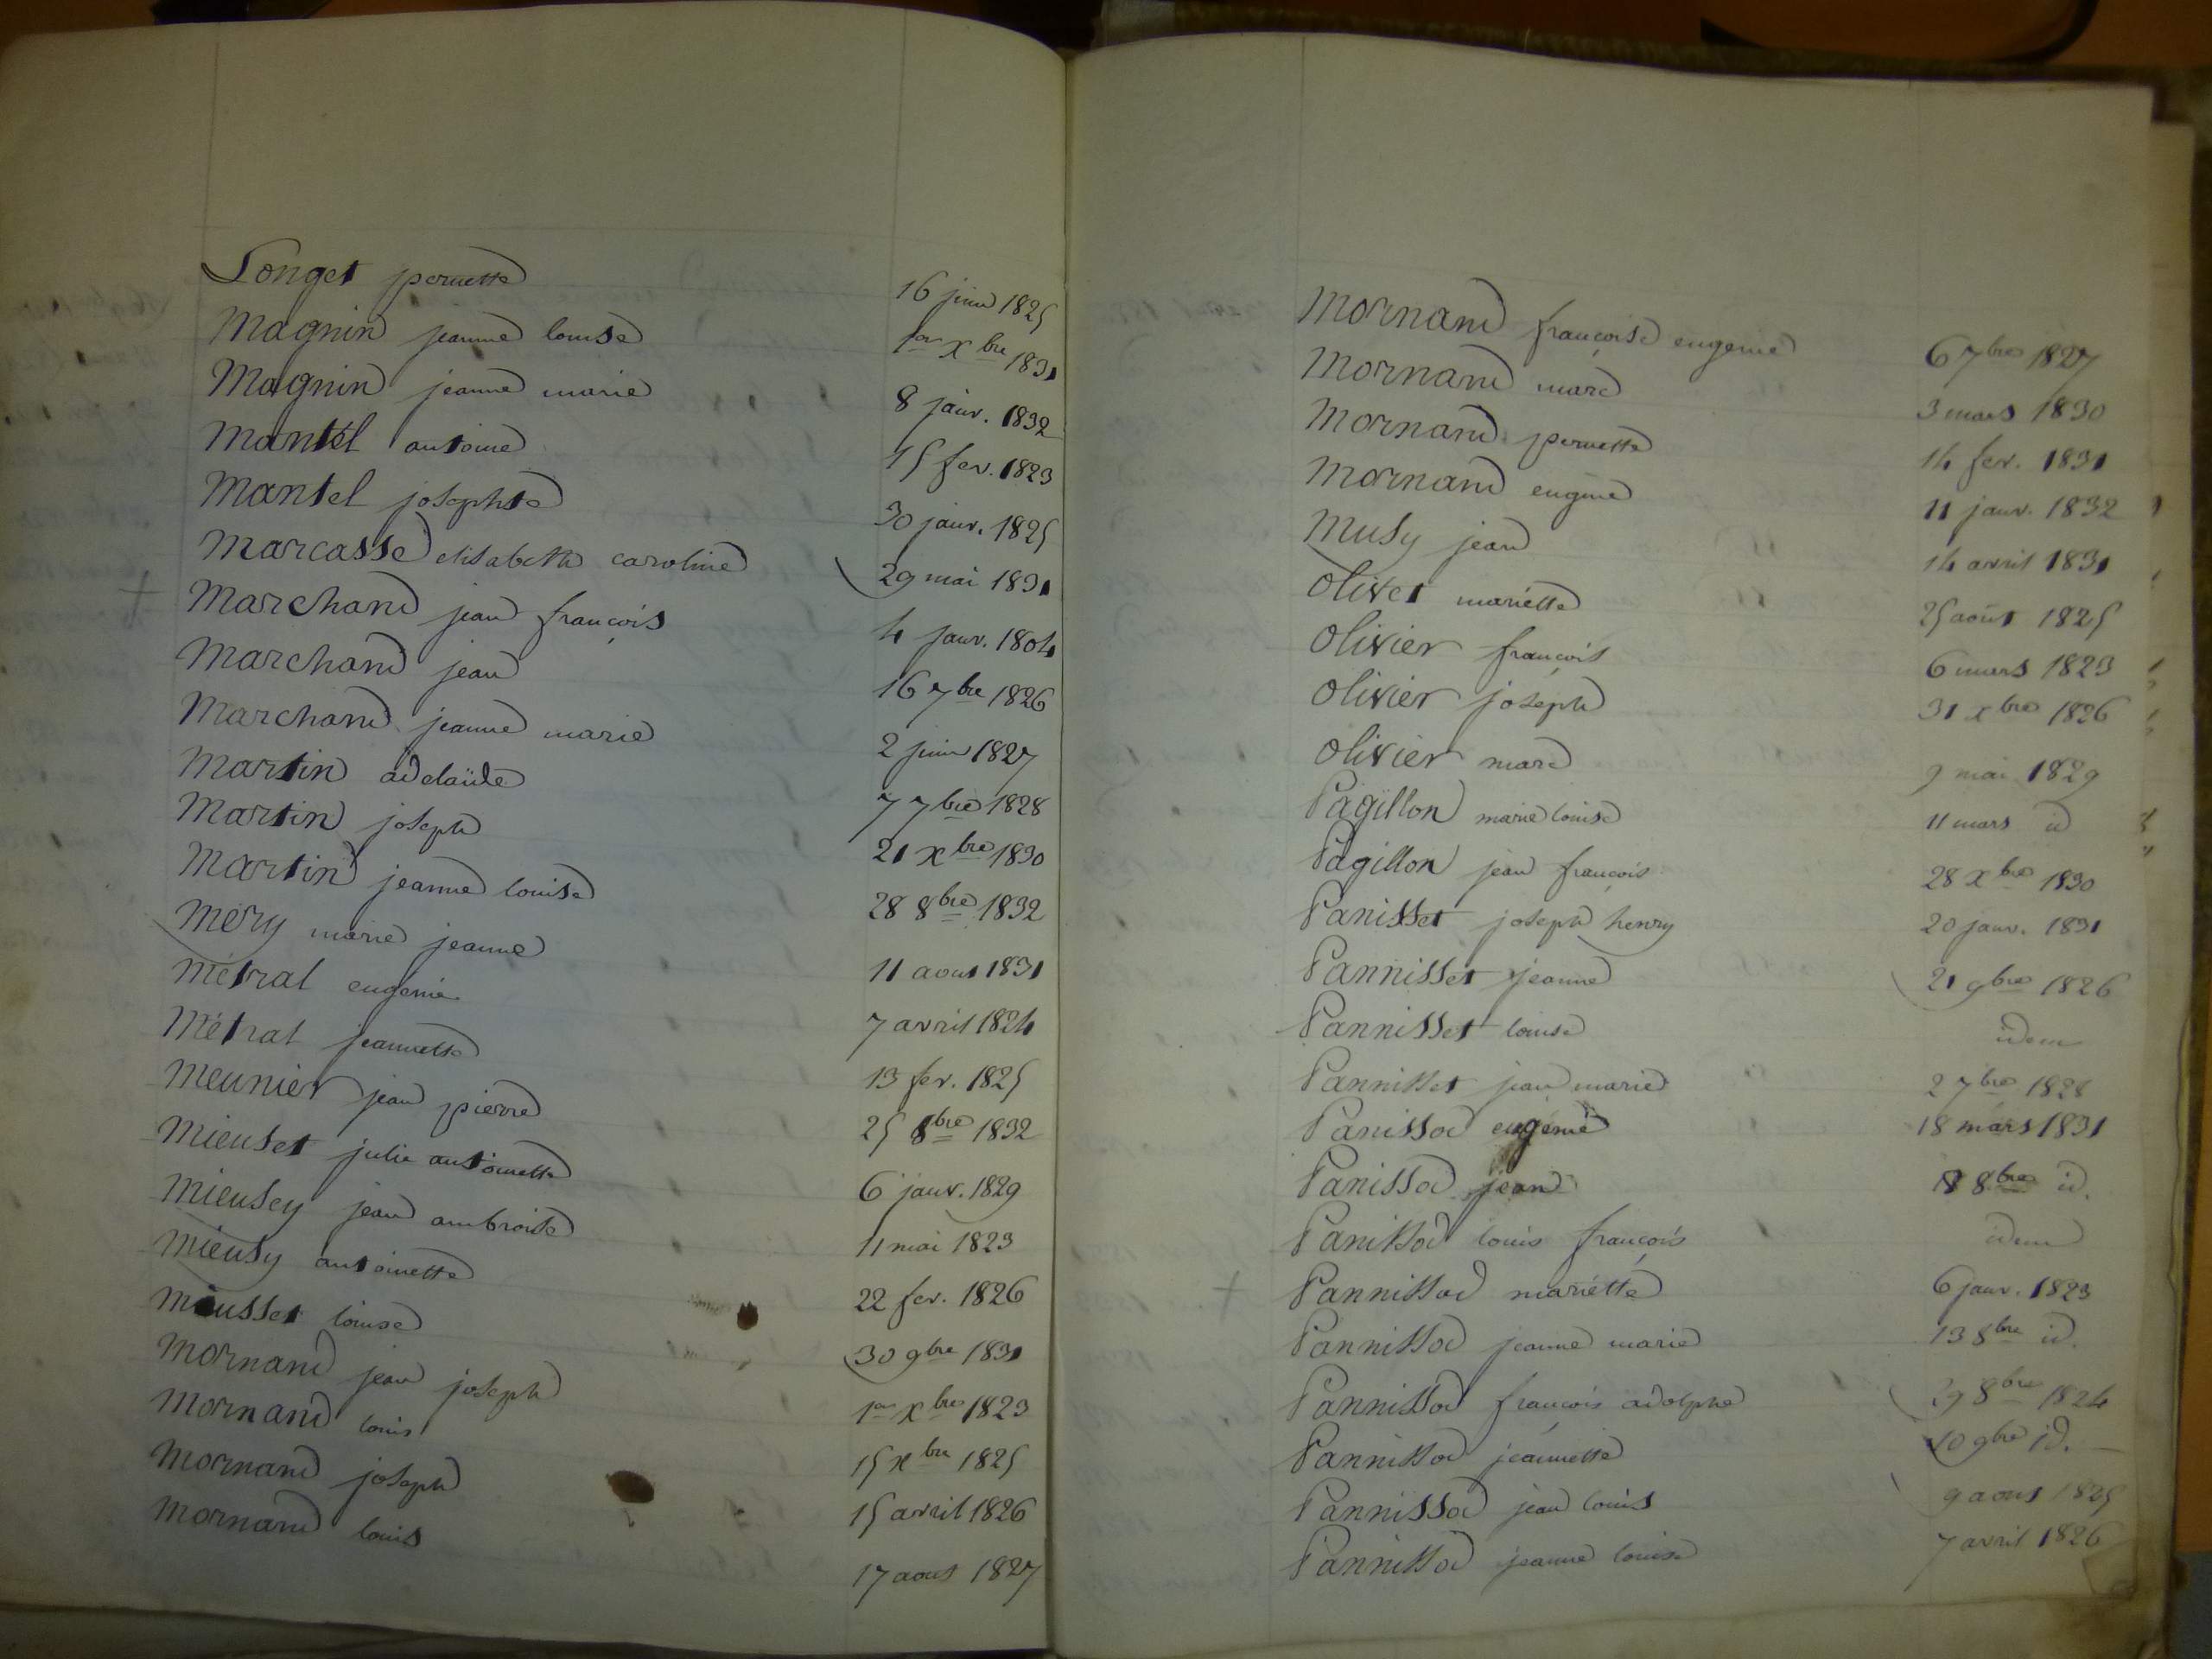 Longet pernette 16 juin 1825
Magnin jeanne louise 1er xbre 1831
Magnin jeanne marie 8 janv. 1832
Mantel antoine 15 fev. 1823
Mantel josephte 30 janv. 1825
Marcasse elisabeth caroline 29 mai 1831
+ Marchand jean françois 4 janv. 1804
Marchand jean 16 7bre 1826
Marchand jeanne marie 2 juin 1827
Martin adelaïde 7 7bre 1828
Martin joseph 21 xbre 1830
Martin jeanne louise 28 8bre 1832
Mery marie jeanne 11 aout 1831
Métral eugénie 7 avril 1824
Métral jeannette 13 fev. 1825
Meunier jean pierre 25 8bre 1832
Mieuset julie antoinette 6 janv. 1829
Mieusey jean ambroise 11 mai 1823
Mieusy antoinette 22 fev. 1826
Mieusset louise 30 9bre 1831
Mornand jean joseph 1er xbre 1823
Mornand louis 15 xbre 1825
Mornand joseph 15 avril 1826
Mornand louis 17 aout 1827
Mornand françoise eugenie 6 7bre 1827
Mornand marc 3 mars 1830
Mornand pernette 14 fev. 1831
Mornand eugène 11 janv. 1832
Musy jean 14 avril 1831
Olivet mariette 25 août 1825
Olivier françois 6 mars 1823
Olivier joseph 31 xbre 1826
Olivier marc 9 mai 1829
Pagillon marie louise 11 mars id
Pagillon jean françois 28 xbre 1830
Panisset joseph henry 20 janv. 1831
Pannisset jeanne 21 9bre 1826
Pannisset louise idem
Pannisset jean marie 2 7bre 1828
Panissod eugénie 18 mars 1831
Panissod jean 8bre id.
Panissod louis françois idem
+ Pannissod mariette 6 janv. 1823
Pannissod jeanne marie 13 8bre id.
Pannissod françois adolphe 29 8bre 1824
Pannissod jeannette 10 9bre id.
Pannissod jean louis 9 aout 1825
Pannissod jeanne louise 7 avril 1826